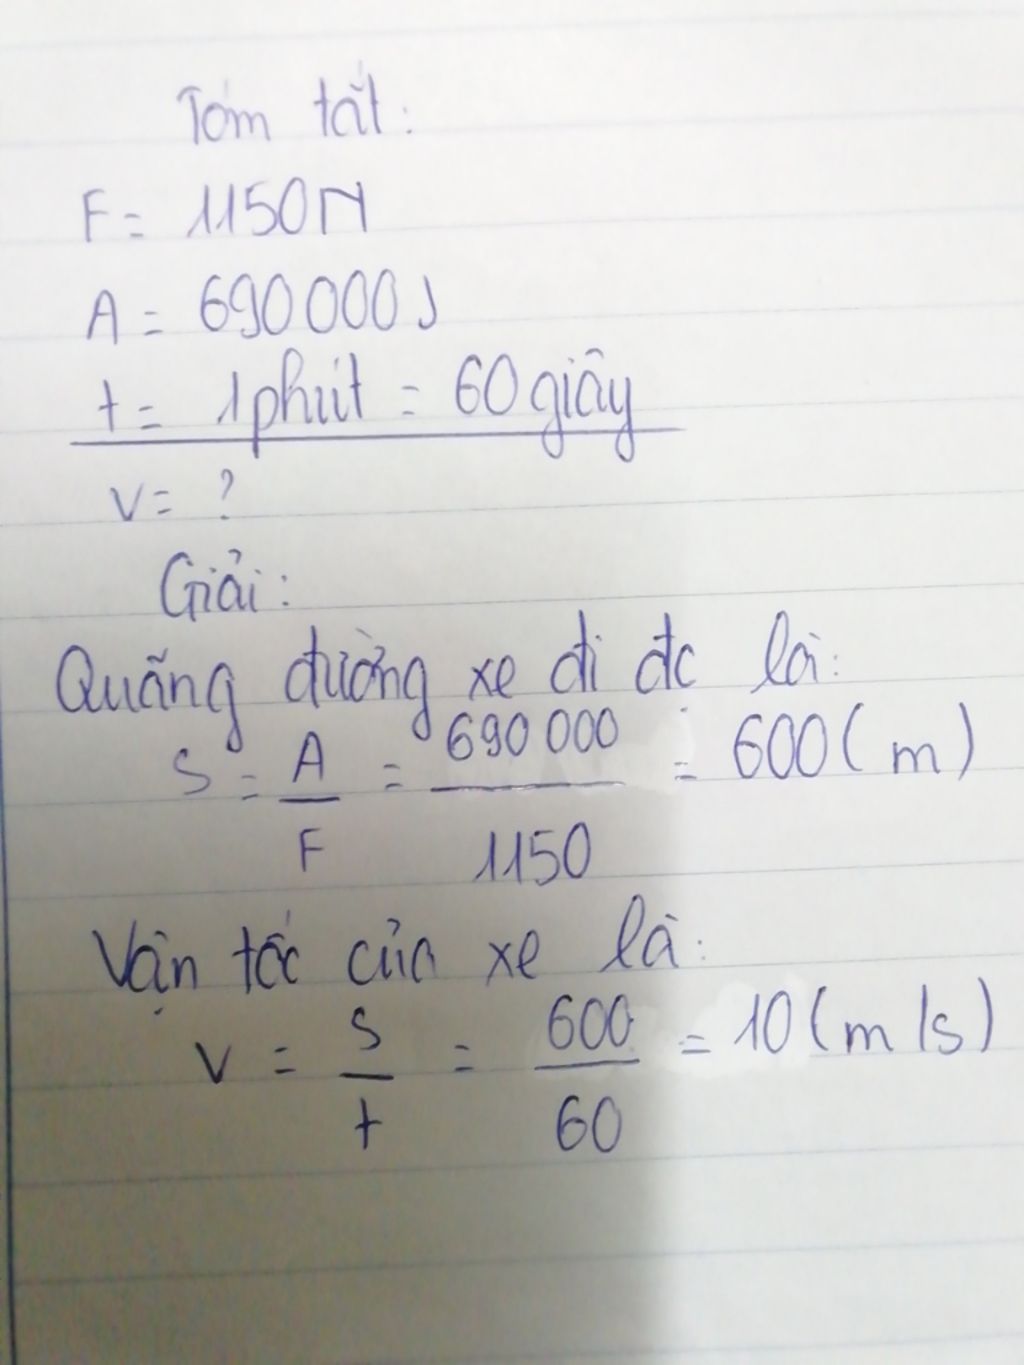 Tóm tắt:
F = 1150N
A = 690 000J
t = 1 phút = 60 giây
v = ?
Giải:
Quãng đường xe đi đc là:
S = A/F = 690 000/1150 = 600 (m)
Vận tốc của xe là:
v = S/t = 600/60 = 10 (m/s)